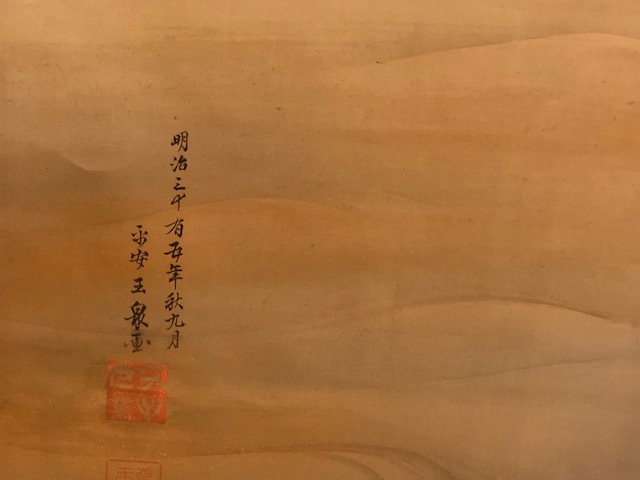 明治三十有五年秋九月
平安玉泉画